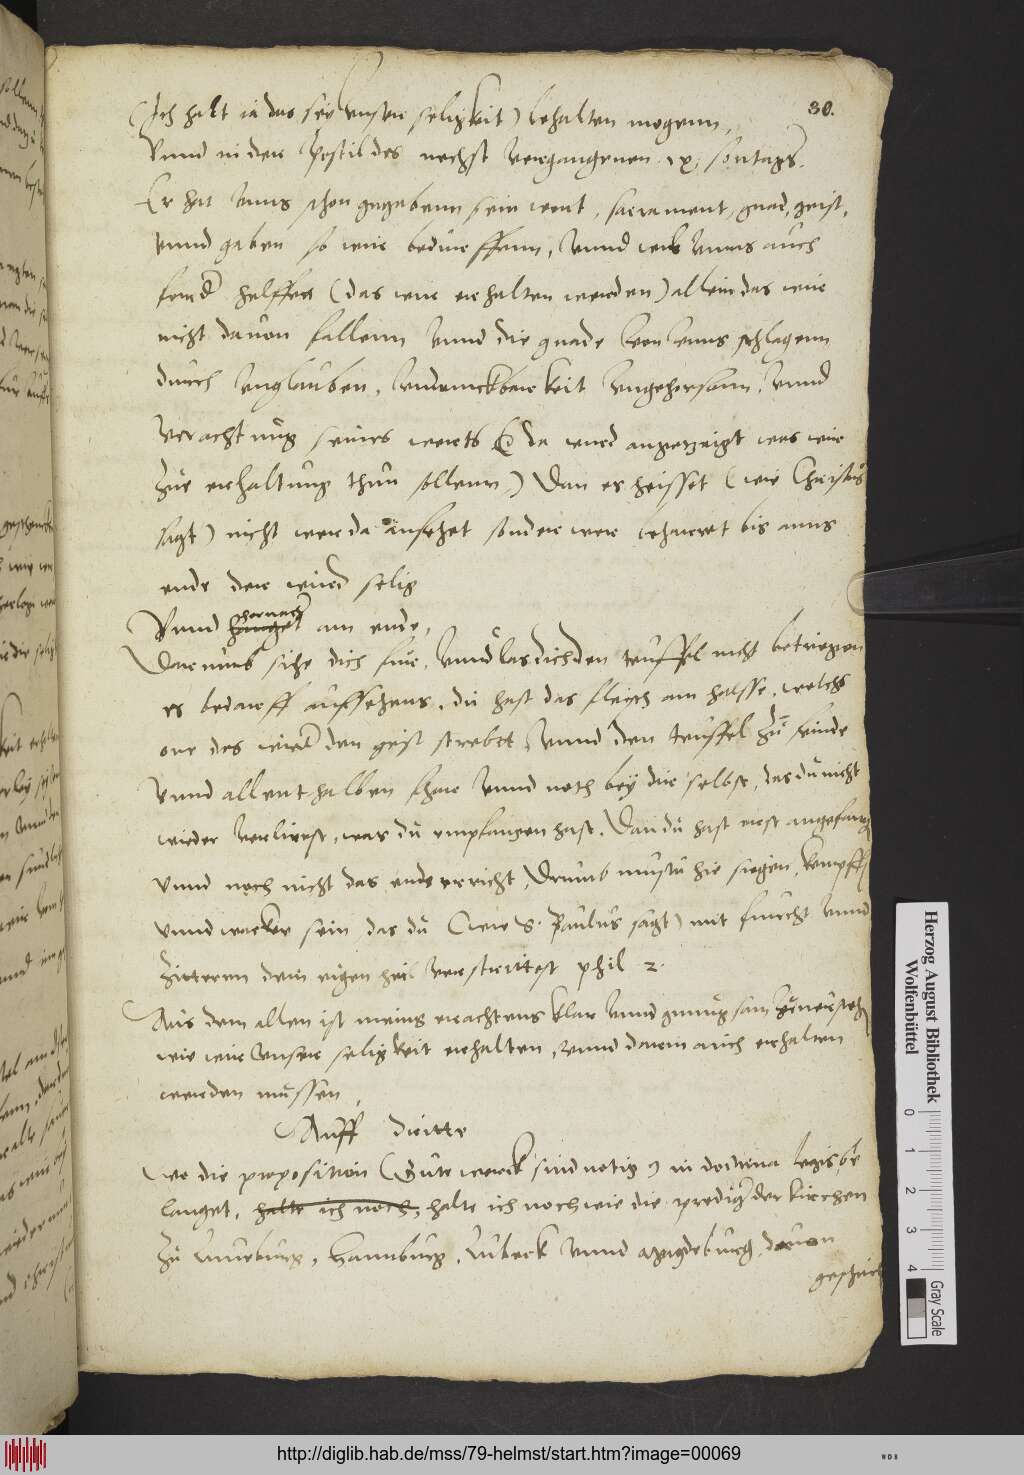 30.
(Ich halt ia das sei unser seligkeit) behalten mogenn,
Vnnd in der Postil des nechst vergangenen ix sontags.
Er hat vnns schon gegebenn sein wort, sacrament, gnad, geist,
vnnd gaben so wir bedurffenn, vnnd wil vnns auch
ferner helffen (das wir erhalten werden) allein das wir
nicht dauon fallenn vnnd die gnade von vnns schlagenn
durch vnglauben, vndanckbarkeit vngehorsam, vnnd
verachtung seines worts (da wird angezeigt was wir
zur erhaltung thun sollenn) Dan es heisset (wie Christus
sagt) nicht wer da anfehet sonder wer beharret bis anns
ende der wird selig
Vnnd hernach am ende,
Darumb sihe dich fur, vnnd las dich den teuffel nicht betriegen
es bedarff auffsehens, du hast das fleisch am halsse, welchs
den geist strebet, vnnd den teuffel zu feinde
vnnd allenthalben fhar vnnd noth bey dir selbst, das du nicht
wieder verlierest, was du empfangen hast. Dan du hast erst angefangen
vnnd noch nicht das ende erreicht, Drumb mustu hie
vnnd wacker sein, das du (wie S. Paulus sagt) mit furcht vnnd
zitteren dein eigen heil phil 2.
Aus dem allen ist meins erachtens klar vnnd gnugsam
wie wir vnser seligkeit erhalten, vnnd darin auch erhalten
werden mussen,
Auff dritte
wo die proposition (Gute werck sind notig) in doctrina legis be
langet, halte ich noch, halte ich noch wie die prediger der kirchen
zu Luneburg, Hamburg, Lubeck vnnd Magdeburg, dauon
Herzog August Bibliothek
Wolfenbüttel
0 1 2 3 4
Gray Scale
http://diglib.hab.de/mss/79-helmst/start.htm?image=00069